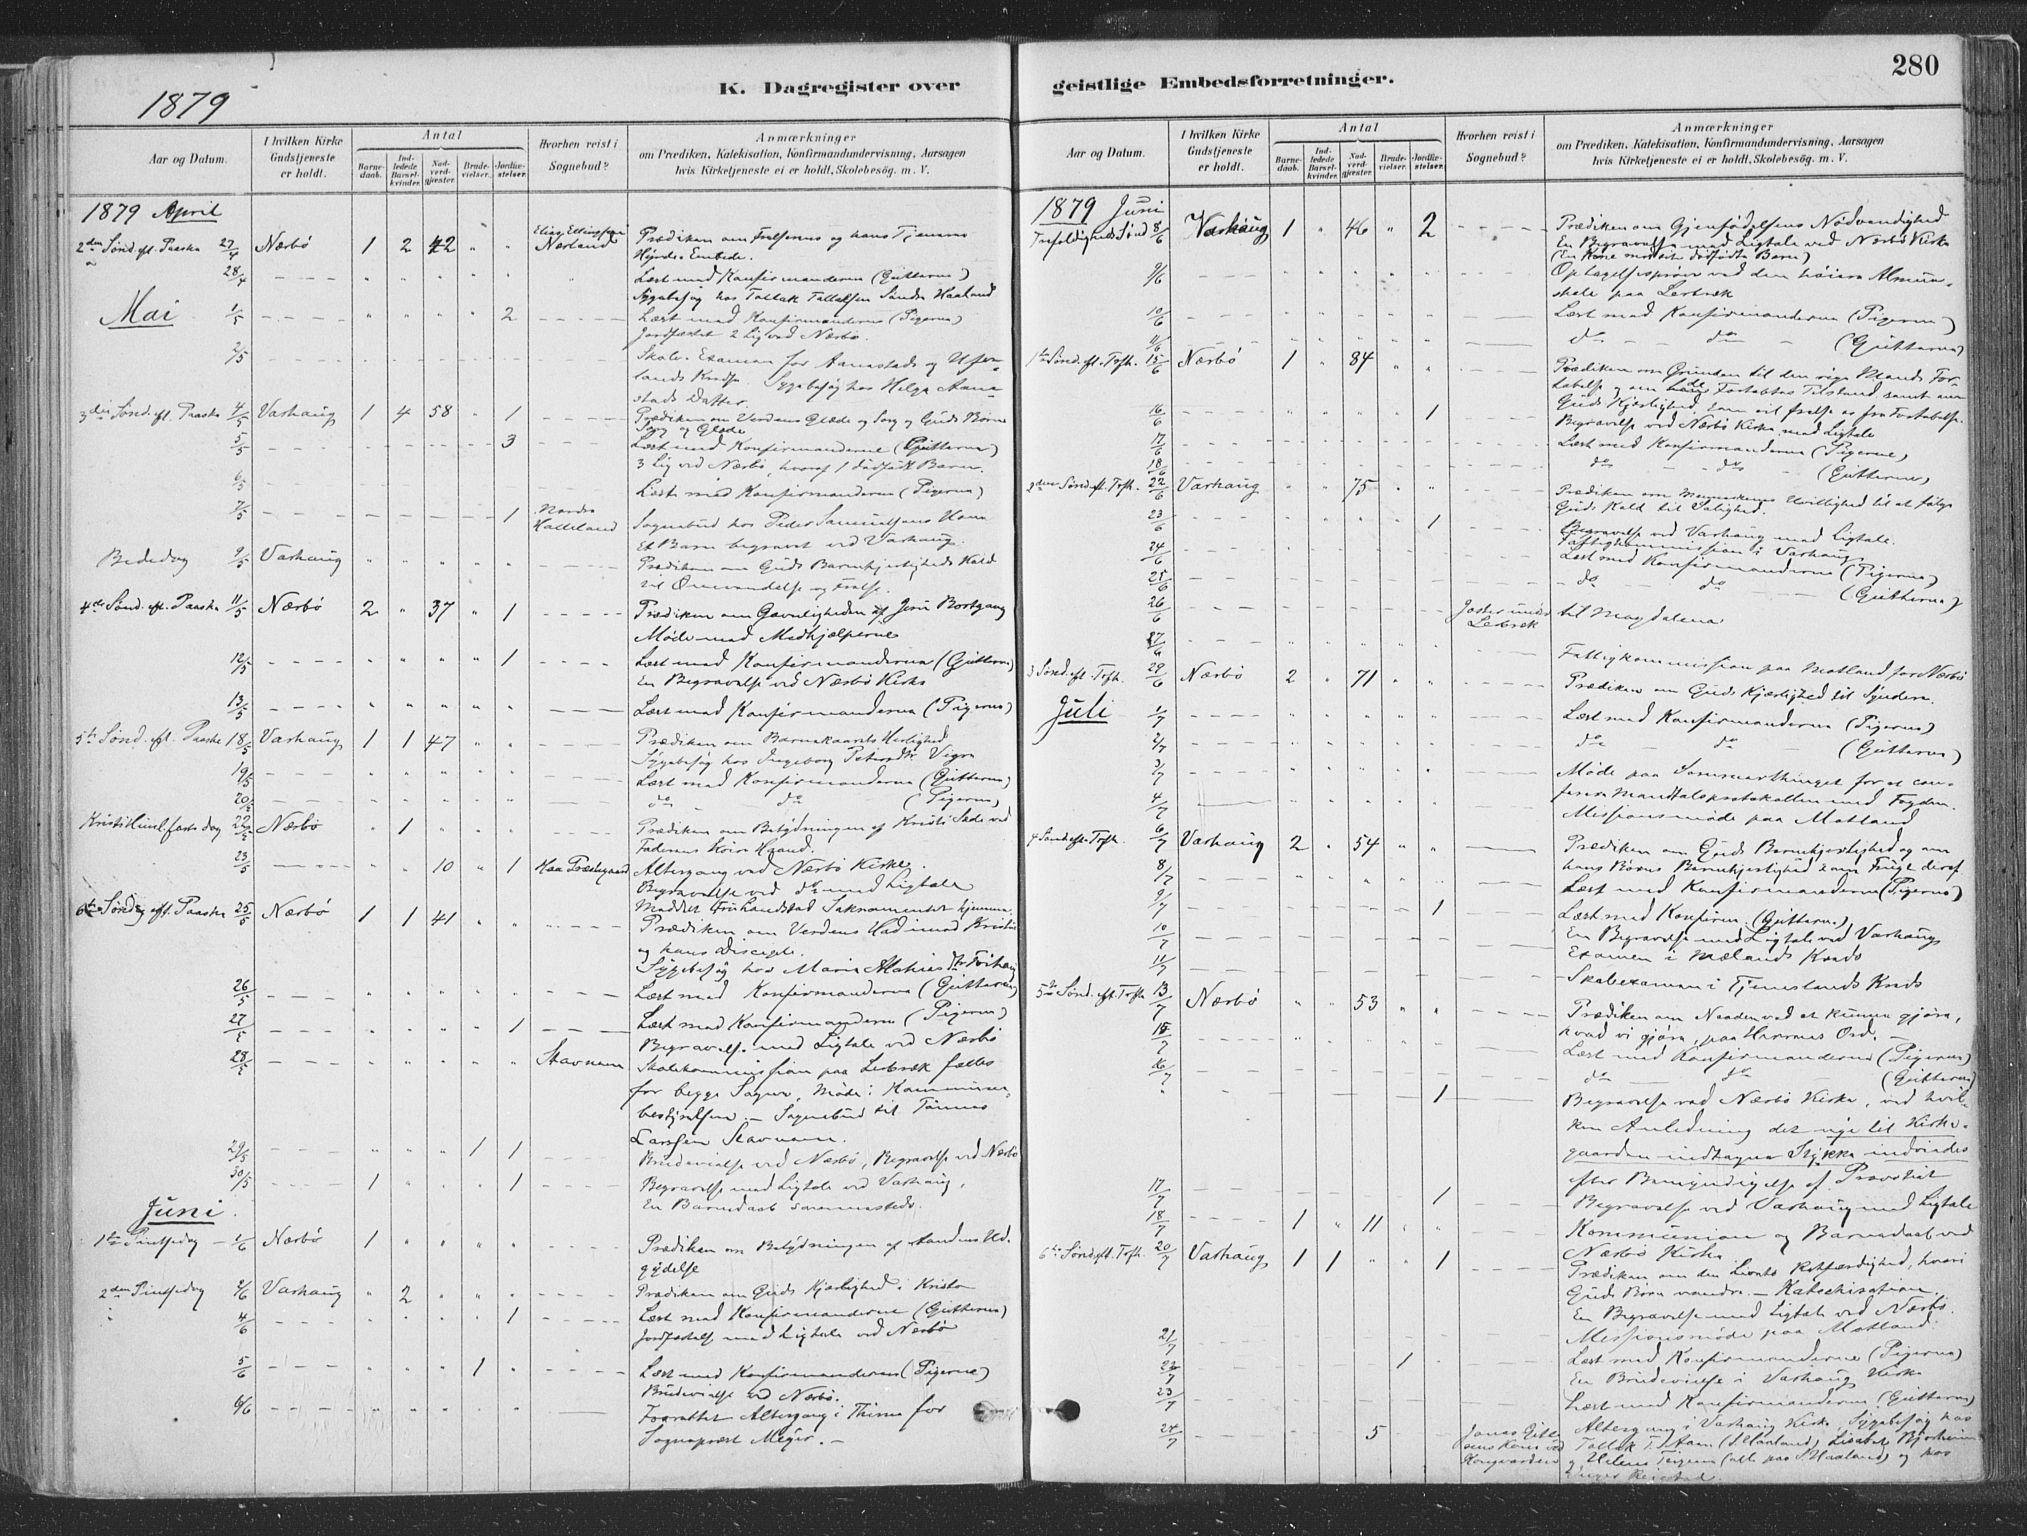 280
K. Dagregister over geistlige Embedsforretninger.
1879
Aar og Datum.
I hvilken Kirke Gudstjeneste er holdt.
Antal
Barnedaab.
Indledede Barselkvinder.
Nadverdgjester.
Brudevielser.
Jordfæstelser.
Hvorhen reist i Sognebud?
Anmærkninger
om Prædiken, Katekisation, Konfirmandundervisning, Aarsagen
hvis Kirketjeneste ei er holdt, Skolebesøg. m. V.
1879 April
2den Sønd. eft. Paaske 27/4 Nærbø 1 2 42 " " Nærland Prædiken om Frelserens og hans Tjeneres
Hyrde-Embede.
28/4 Læst med Konfirmanderne (Gutterne)
Sygebesøg hos Tollak Tollefsen Søndre Haaland
Mai 1/5 2 Læst med Konfirmanderne (Pigerne)
Jordfæstet 2 Lig ved Nærbø.
2/5 Skole-Examen for Aanestads og
lands Kreds. Sygebesøg hos Helga Aane-
stads Datter.
3die Sønd. eft. Paaske 4/5 Varhaug 1 4 58 " 1 Prædiken om Verdens Glæde og Sorg og Guds Børns
Sorg og Glæde
5/5 3 Læst med Konfirmanderne (Gutterne)
3 Lig ved Nærbø, hvoraf 1 dødfødt Barn.
6/5 Læst med Konfirmanderne (Pigerne)
7/5 1 Nordre Sognebud hos Peder Samuelsens Kone
Et Barn begravet ved Varhaug.
Bededag 9/5 Varhaug Prædiken om Guds Barmhjertigheds Kald
til Omvendelse og Frelse.
4de Sønd. eft. Paaske 11/5 Nærbø 2 " 37 " 1 Prædiken om Gavnligheden af Jesu Bortgang
Møde med Medhjælperne
12/5 1 Læst med Konfirmanderne (Gutterne)
En Begravelse ved Nærbø Kirke
13/5 Læst med Konfirmanderne (Pigerne)
5te Sønd. eft. Paaske 18/5 Varhaug 1 1 47 " " Prædiken om Herlighed
Sygebesøg hos Ingeborg Petersdtr. Vigre
19/5 Læst med Konfirmanderne (Gutterne)
20/5 do do (Pigerne)
Kristi Himmelfartsdag 22/5 Nærbø " 1 Prædiken om Betydningen af Kristi Sæde ved
Faderens høire Haand.
23/5 10 " 1 Haa Præstegaard Altergang ved Nærbø Kirke.
Begravelse ved do med Ligtale
6te Søndag eft. Paaske 25/5 Nærbø 1 1 41 Sakramentet hjemme.
Prædiken om Verdens Had imod Kristus
og hans Disciple.
Sygebesøg hos
26/5 Læst med Konfirmanderne (Gutterne)
27/5 1 Læst med Konfirmanderne (Pigerne)
Begravelse med Ligtale ved Nærbø
28/5 Stavnem Skolekommission paa Lerbræk fælles
for begge Sogne, Møde i Kommune-
bestyrelsen. – Sognebud til Tønnes
Larssen Stavnem.
29/5 1 1 Brudevielse ved Nærbø, Begravelse ved Nærbø
30/5 1 1 Begravelse med Ligtale ved Varhaug.
En Barnedaab sammesteds.
Juni.
1ste Pintsedag 1/6 Nærbø 1 Prædiken om Betydningen af Aandens Ud-
gydelse
2den Pintsedag 2/6 Varhaug " 2 Prædiken om Guds Kjærlighed i Kristo
4/6 1 Læst med Konfirmanderne (Gutterne)
Jordfæstelse med Ligtale ved Nærbø
5/6 1 Læst med Konfirmanderne (Pigerne)
Brudevielse ved Nærbø.
6/6 Forrettet Altergang i Thime for
Sognepræst Meyer. –
Aar og Datum.
I hvilken Kirke Gudstjeneste er holdt.
Antal
Barnedaab.
Indledede Barselkvinder.
Nadverdgjester.
Brudevielser.
Jordfæstelser.
Hvorhen reist i Sognebud?
Anmærkninger
om Prædiken, Katekisation, Konfirmandundervisning, Aarsagen
hvis Kirketjeneste ei er holdt, Skolebesøg. m. V.
1879 Juni
Trefoldigheds Sønd 8/6 Varhaug 1 " 46 " 2 Prædiken om Gjenfødelsens Nødvendighed
En Begravelse med Ligtale ved Nærbø Kirke
(En Kone med sit dødfødte Barn)
9/6 Optagelsesprøve ved den høiere Almue-
skole paa Lerbræk
10/6 Læst med Konfirmanderne (Pigerne)
11/6 do do (Gutterne)
1ste Sønd. eft. Trefh. 15/6 Nærbø 1 " 84 Prædiken om Grunden til den rige Mands For-
tabelse og om de Fortabtes Tilstand samt om
Guds Kjærlighed, som vil frelse os fra Fortabelse.
16/6 1 Begravelse ved Nærbø Kirke med Ligtale
17/6 Læst med Konfirmanderne (Pigerne)
18/6 do do (Gutterne)
2den Sønd. eft. Trefh. 22/6 Varhaug 75 Prædiken om Menneskenes Uvillighed til at følge
Guds Kald til Salighed.
23/6 1 Begravelse ved Varhaug med Ligtale.
Fattigkommission i Varhaug
24/6 Læst med Konfirmanderne (Pigerne)
25/6 do do (Gutterne)
26/6 Lerbræk til Magdalena
27/6 Fattigkommission paa Motland for Nærbø
3 Sønd. eft. Trefh. 29/6 Nærbø 2 " 71 Prædiken om Guds Kjærlighed til Syndere
Juli 1/7 Læst med Konfirmanderne (Pigerne)
2/7 do do (Gutterne)
3/7 Møde paa Sommerthinget for at con-
ferere Mandtalsprotokollen med Fogden.
4/7 Missionsmøde paa Motland
4 Sønd eft. Trefh. 6/7 Varhaug 2 " 54 Prædiken om Guds Barmhjertighed og om
hans Børns Barmhjertighed som Frugt deraf
8/7 Læst med Konfirmanderne (Pigerne)
9/7 1 Læst med Konfirm. (Gutterne)
En Begravelse med Ligtale ved Varhaug
10/7 Examen i Mælands Kreds
11/7 Skoleexamen i Tjemslands Kreds
5te Sønd. eft. Trefh 13/7 Nærbø 53 Prædiken om Naaden ved at kunne gjøre,
hvad vi gjøre, paa Herrens Ord. –
15/7 Læst med Konfirmanderne (Pigerne)
16/7 do do (Gutterne)
" 1 Begravelse ved Nærbø Kirke, ved hvil-
ken Anledning det nye til Kirke-
gaarden indtagne Stykke indviedes
efter Bemyndigelse af Provstiet
17/7 1 Begravelse ved Varhaug med Ligtale
18/7 1 " 11 Kommunion og Barnedaab ved
Nærbø Kirke
6te Sønd. eft. Trefh. 20/7 Varhaug 1 1 " " 1 Prædiken om den Retfærdighed, hvori
Guds Børn vandre. – Katechisation.
En Begravelse med Ligtale ved Nærbø.
21/7 Missionsmøde paa Motland.
22/7 1 Læst med Konfirmanderne (Pigerne)
En Brudevielse i Varhaug Kirke
23/7 Læst med Konfirmanderne (Gutterne)
24/7 5 Jonas Altergang i Varhaug Kirke, Sygebesøg hos
Tollak T. (S. Haaland), Bjorheim
og (alle paa S. Haaland) og hos